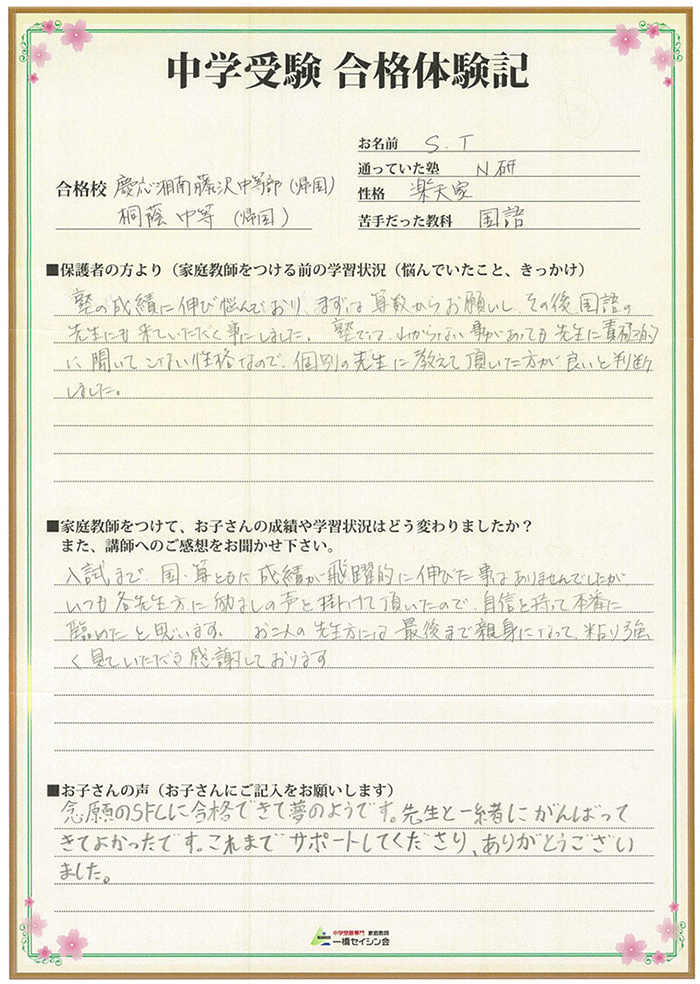 中学受験 合格体験記
お名前 S.T
通っていた塾 N研
合格校 慶応湘南藤沢中等部(帰国)
性格 楽天家
桐蔭中等(帰国)
苦手だった教科 国語
■保護者の方より(家庭教師をつける前の学習状況(悩んでいたこと、きっかけ)
塾の成績に伸び悩んでおり、まずは算数からお願いし、その後国語の
先生にも来ていただく事にしました。塾では、わからない事があっても先生に積極的
に聞いてこない性格なので、個別の先生に教えて頂いた方が良いと判断
しました。
■家庭教師をつけて、お子さんの成績や学習状況はどう変わりましたか?
また、講師へのご感想をお聞かせ下さい。
入試まで、国・算ともに成績が飛躍的に伸びた事はありませんでしたが
いつも各先生方に励ましの声を掛けて頂いたので、自信を持って本番に
臨めたと思います。お二人の先生方には最後まで親身になって、粘り強
く見ていただき感謝しております
■お子さんの声(お子さんにご記入をお願いします)
念願のSFCに合格できて夢のようです。先生と一緒にがんばって
きてよかったです。これまでサポートしてくださり、ありがとうござい
ました。
中学受験専門 家庭教師
一橋セイシン会